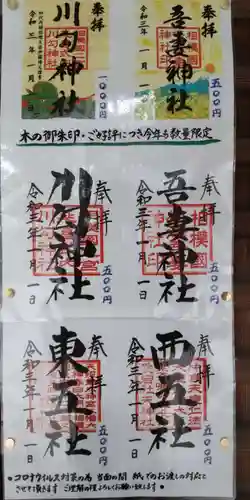 奉拝
吾妻神社
令和三年一月一日
五〇〇円
奉拝
川勾神社
令和三年一月一日
一〇〇〇円
木の御朱印・ござ好評につき今年も数量限定
奉拝
吾妻神社
相模國
令和三年一月一日
五〇〇円
奉拝
川勾神社
令和三年一月一日
五〇〇円
奉拝
西五社
令和三年一月一日
五〇〇円
奉拝
東五社
令和三年一月一日
五〇〇円
●コロナウイルス対策の為 当面の間 紙でのお渡しの対応と
させて頂きます ご理解の程よろしくお願い致します●